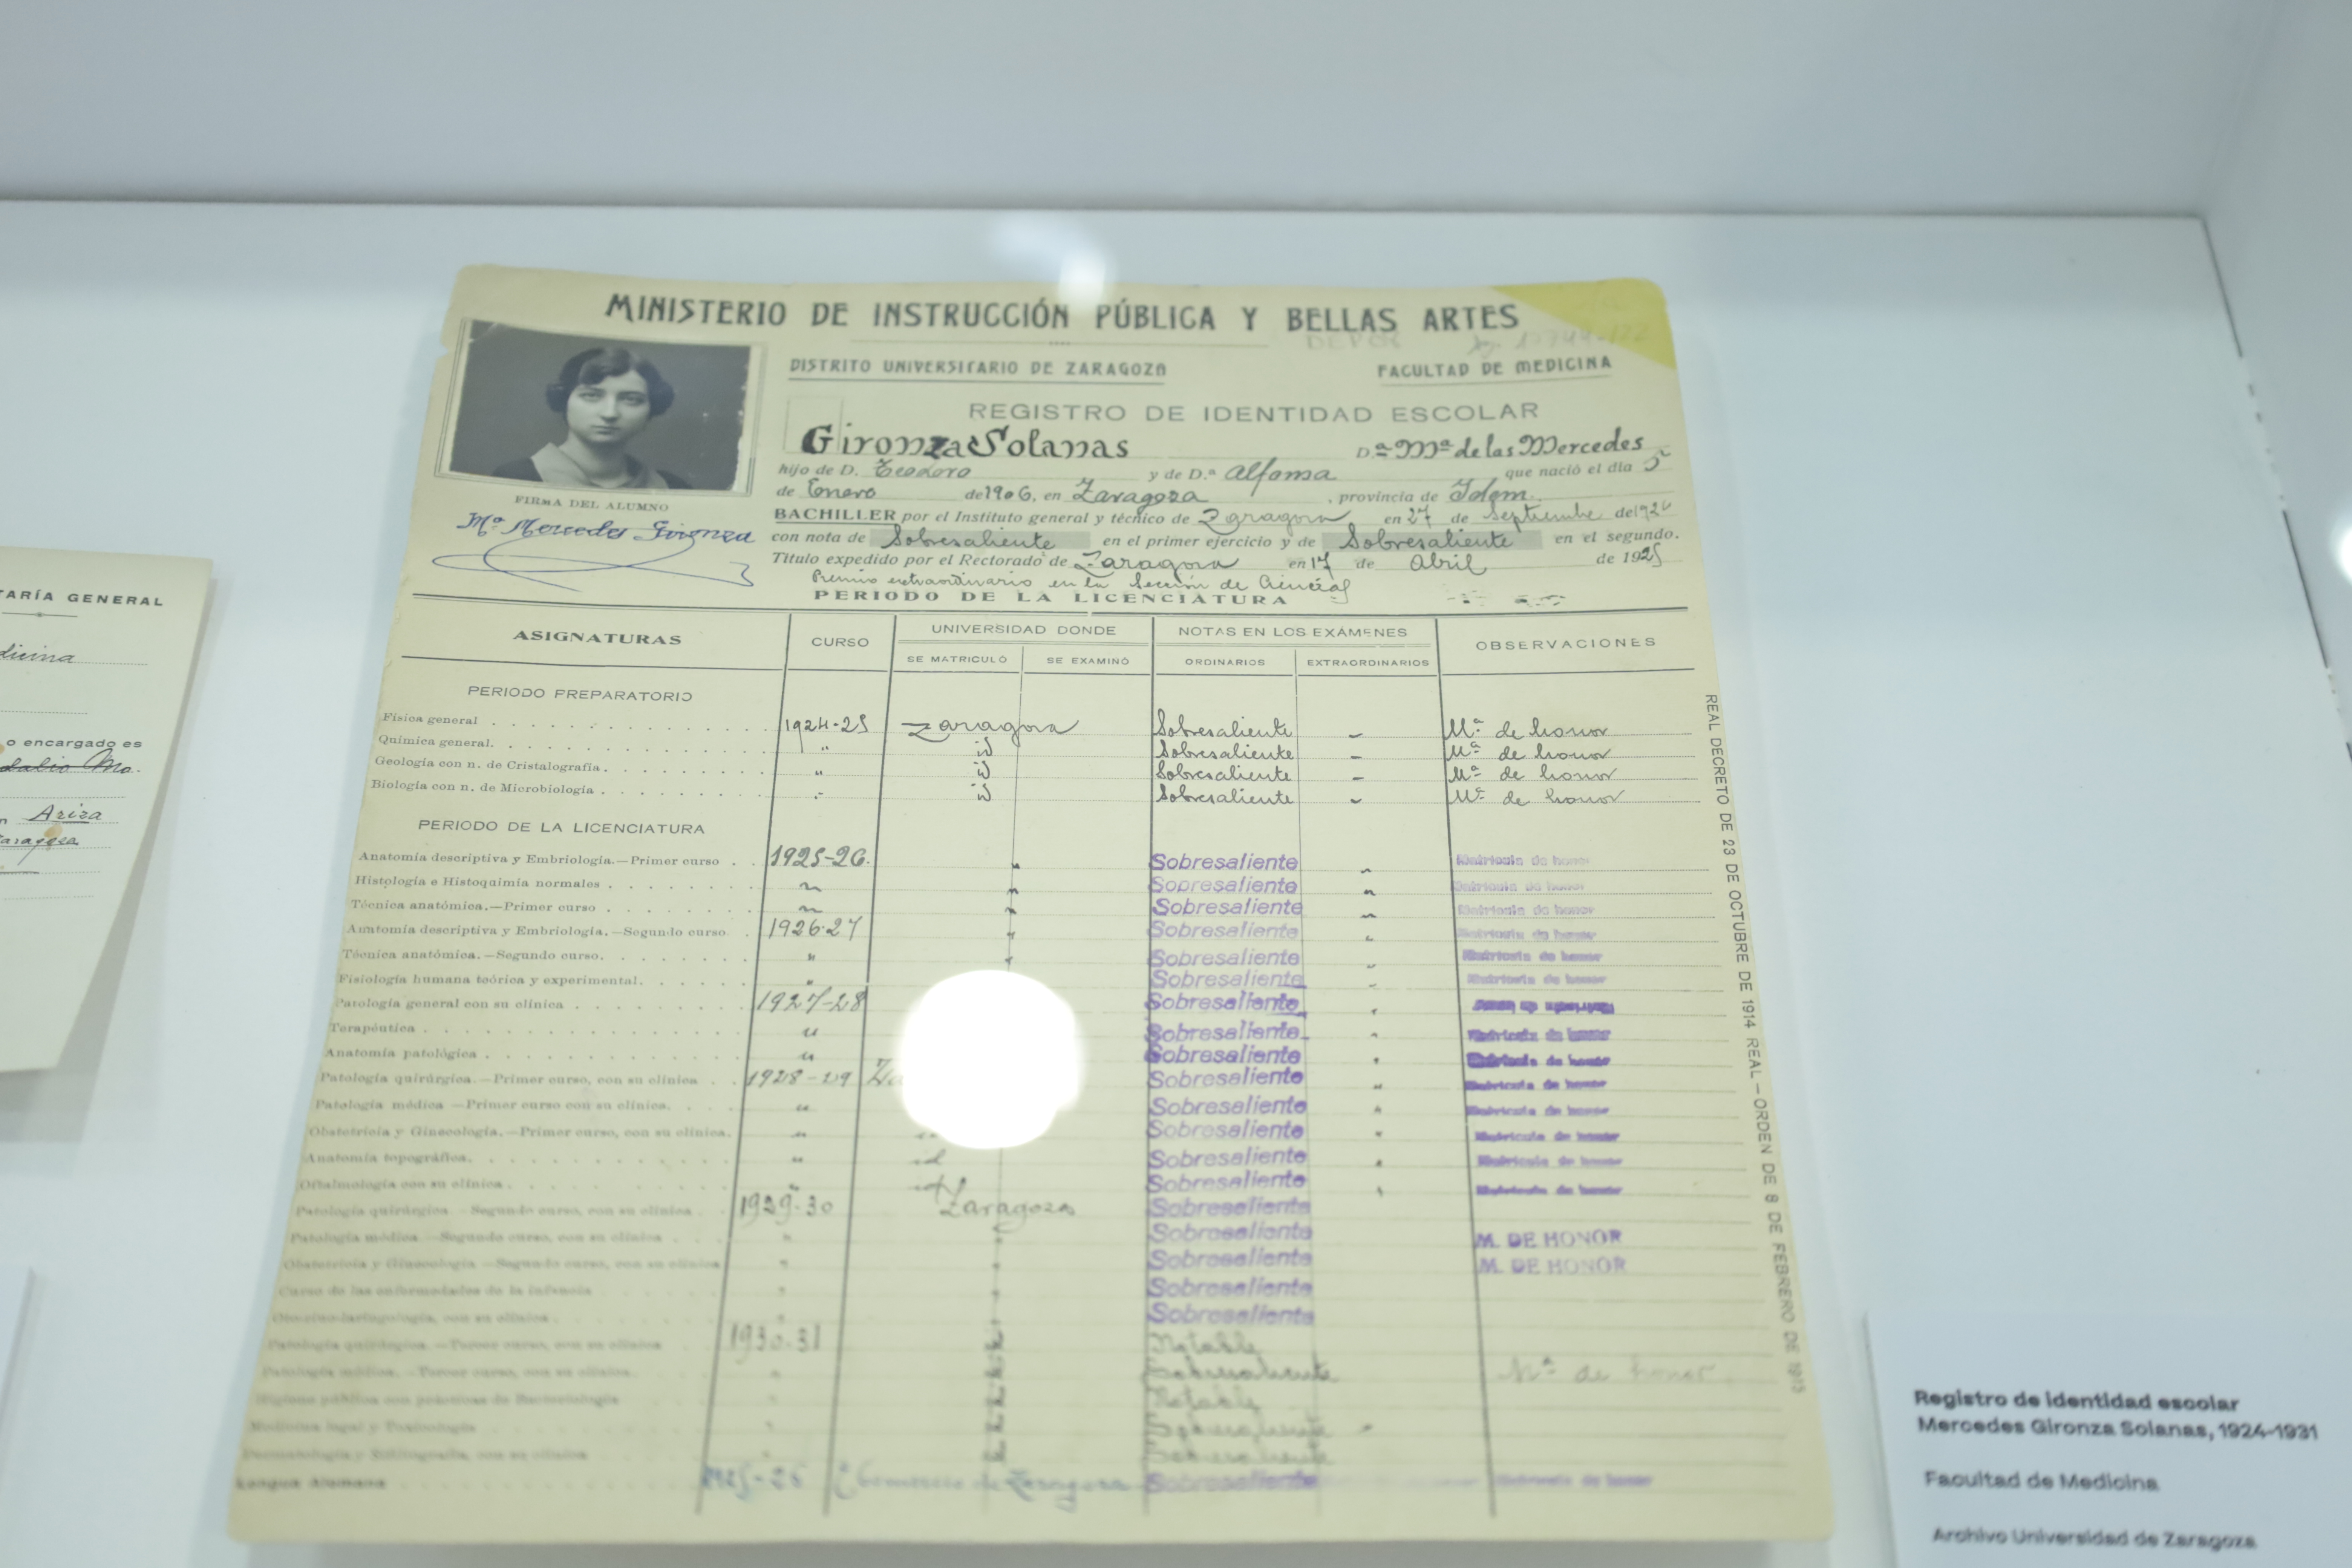 MINISTERIO DE INSTRUCCIÓN PÚBLICA Y BELLAS ARTES
DISTRITO UNIVERSITARIO DE ZARAGOZA
FACULTAD DE MEDICINA
REGISTRO DE IDENTIDAD ESCOLAR
Gironza Solanas D.ª Mª de las Mercedes
hijo de D. Teodoro y de D.ª Alfonsa que nació el dia 5
de Enero de 1906, en Zaragoza, provincia de Idem.
BACHILLER por el Instituto general y técnico de Zaragoza en 27 de Septiembre de 192
con nota de Sobresaliente en el primer ejercicio y de Sobresaliente en el segundo.
Titulo expedido por el Rectorado de Zaragoza en 17 de Abril de 1925
Premio extraordinario en la Sección de Ciencias
FIRMA DEL ALUMNO
Mª Mercedes Gironza
PERIODO DE LA LICENCIATURA
ASIGNATURAS CURSO UNIVERSIDAD DONDE NOTAS EN LOS EXÁMENES OBSERVACIONES
SE MATRICULÓ SE EXAMINÓ ORDINARIOS EXTRAORDINARIOS
PERIODO PREPARATORIO
Física general 1924-25 Zaragoza Sobresaliente - Mª de honor
Química general. " id Sobresaliente - Mª de honor
Geología con n. de Cristalografía. " id Sobresaliente - Mª de honor
Biología con n. de Microbiología " id Sobresaliente - Mª de honor
PERIODO DE LA LICENCIATURA
Anatomía descriptiva y Embriología.—Primer curso 1925-26. " Sobresaliente " Matrícula de honor
Histología e Histoquimia normales " " Sobresaliente " Matrícula de honor
Técnica anatómica.—Primer curso " " Sobresaliente " Matrícula de honor
Anatomía descriptiva y Embriología.—Segundo curso 1926-27 " Sobresaliente " Matrícula de honor
Técnica anatómica.—Segundo curso. " " Sobresaliente " Matrícula de honor
Fisiología humana teórica y experimental. " Sobresaliente " Matrícula de honor
Patología general con su clínica 1927-28 Sobresaliente "
Terapéutica " Sobresaliente " Matrícula de honor
Anatomía patológica " Sobresaliente " Matrícula de honor
Patología quirúrgica.—Primer curso, con su clínica 1928-29 Sobresaliente " Matrícula de honor
Patología médica —Primer curso con su clínica. " Sobresaliente " Matrícula de honor
Obstetricia y Ginecología.—Primer curso, con su clínica. " Sobresaliente " Matrícula de honor
Anatomía topográfica. " id Sobresaliente " Matrícula de honor
Oftalmología con su clínica " id Sobresaliente " Matrícula de honor
Patología quirúrgica.—Segundo curso, con su clínica 1929-30 Zaragoza Sobresaliente
Patología médica.—Segundo curso, con su clínica " " Sobresaliente M. DE HONOR
Obstetricia y Ginecología.—Segundo curso, con su clínica " " Sobresaliente M. DE HONOR
Curso de las enfermedades de la infancia " " Sobresaliente
con su clínica " " Sobresaliente
Patología quirúrgica.—Tercer curso, con su clínica 1930-31 Notable
Patología médica.—Tercer curso, con su clínica. " Sobresaliente Mª de honor
Higiene pública con prácticas de Bacteriología " Notable
Medicina legal y Toxicología " Sobresaliente
con su clínica Sobresaliente
Lengua Alemana 1925-26 Comercio de Zaragoza Sobresaliente Matrícula de honor
REAL DECRETO DE 23 DE OCTUBRE DE 1914 REAL—ORDEN DE 8 DE FEBRERO DE 1915
TARÍA GENERAL
dicina
o encargado es
Mo.
n Ariza
Zaragoza
Registro de identidad escolar
Mercedes Gironza Solanas, 1924-1931
Facultad de Medicina
Archivo Universidad de Zaragoza